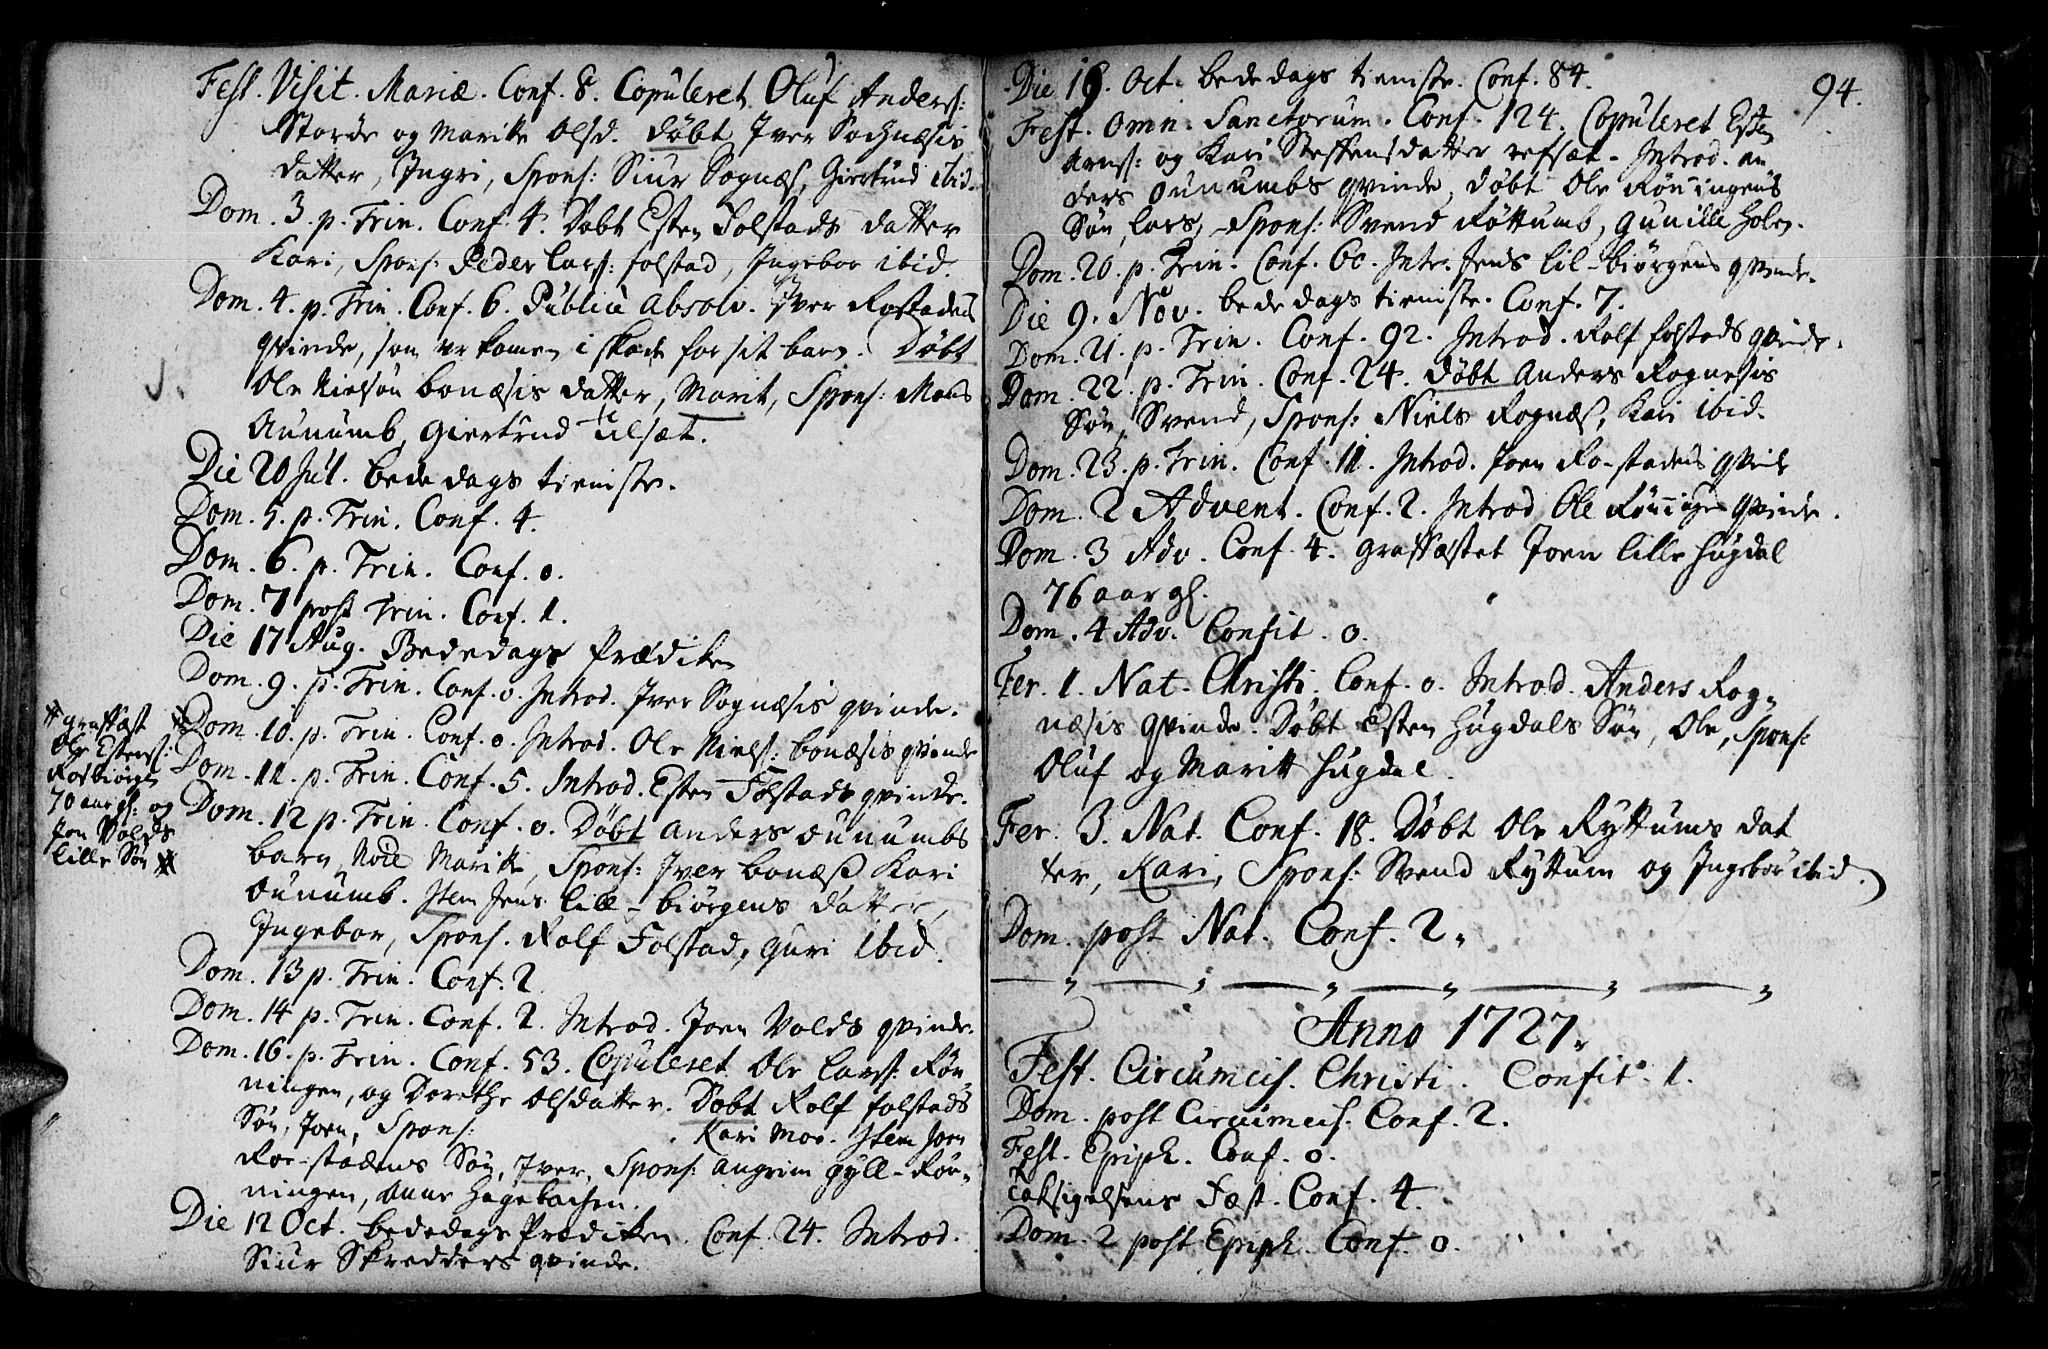 Fest. Visit. Mariæ. Conf. 8. Copuleret Oluf Anders:
Størde og Marite Olsd. døbt Iver Sognæsis
datter, Ingri, Spons: Siur Sognæs, Giertrud ibid.
Dom. 3. p. Trin. Conf. 4. Døbt Esten Folstads datter
Kari, Spons: Peder Lars: folstad, Ingebor ibid.
Dom. 4. p. Trin. Conf. 6. Publicè absolv. Iver Rostadens
qvinde, som er kommen i skade for sit barn. Døbt
Ole Nielsøn bonæsis datter, Marit, Spons: Mons
Aunumb, Giertrud Ulsæt.
Die 20 Jul. bededags tieniste.
Dom. 5. p. Trin. Conf. 4.
Dom. 6. p. Trin. Conf. 0.
Dom. 7 post Trin. Conf. 1.
Die 17 Aug. Bededags Prædiken
Dom. 9. p. Trin. Conf. 0. Introd. Iver Sognæsis qvinde.
* Dom. 10. p. Trin. Conf. 0. Introd. Ole Niels: bonæsis qvinde
Dom. 11. p. Trin. Conf. 5. Introd. Esten Folstads qvinde.
Dom. 12 p. Trin. Conf. 0. Døbt Anders Ounumbs
barn, Marite, Spons: Iver bonæs Kari
Ounumb. Item Jens lill-biørgens datter,
Ingebor, Spons. Rolf Folstad, Guri ibid.
Dom. 13 p. Trin. Conf. 2
Dom. 14 p. Trin. Conf. 2. Introd. Joen Volds qvinde.
Dom. 16. p. Trin. Conf. 53. Copuleret Ole Lars: Røn
ningen, og Dorethe Olsdatter. Døbt Rolf folstads
Søn, Joen, Spons: . Kari Moe. Item Joen
Roe-stadens Søn, Iver, Spons: Angrim gyll-Røn-
ningen, Anne Hagebachen.
Die 12 Oct. bededags Prædiken. Conf. 24. Introd.
Siur Skredders qvinde.
* graffæst
Ole Estens:
Rosbiørgen
70 aar gl: og
Jon Volds
lille Søn *
94.
Die 18. Oct. bededags tieniste. Conf. 84.
Fest. Omn. Sanctorum. Conf. 124. Copuleret Esten
Arns: og Kari Steffensdatter refsæt. Introd. An
ders Ounumbs qvinde, døbt Ole Rønningens
Søn, Lars, Spons: Svend Røttumb, Gunille Holen.
Dom. 20. p. Trin. Conf. 60. Intr. Jens lil-biørgens qvinde.
Die 9. Nov. bededags tieniste. Conf. 7.
Dom. 21. p. Trin. Conf. 92. Introd. Rolf folstads qvinde.
Dom. 22. p. Trin. Conf. 24. døbt Anders Rognesis
Søn, Svend, Spons: Niels Rognæs, Kari ibid.
Dom. 23. p. Trin. Conf. 11. Introd. Joen Ro-stadens qvinde
Dom. 2 Advent. Conf. 2. Introd Ole Rønninges qvinde.
Dom. 3 Adv. Conf. 4. graffæstet Joen lille Hugdal
76 aar gl.
Dom. 4 Adv. Confit. 0.
Fer. 1. Nat. Christi. Conf. 0. Introd. Anders Rog-
næsis qvinde. Døbt Esten Hugdals Søn, Ole, Spons:
Oluf og Maritt Hugdal.
Fer. 3. Nat. Conf. 18. Døbt Ole Ryttums dat
ter, Kari, Spons: Svend Ryttum og Ingebor ibid.
Dom. post Nat. Conf. 2.
Anno 1727.
Fest. Circumcis. Christi. Confit. 1.
Dom. post Circumcis. Conf. 2.
Fest. Epiph. Conf. 0.
Taksigelsens Fæst. Conf. 4.
Dom. 2 post Epiph. Conf. 0.